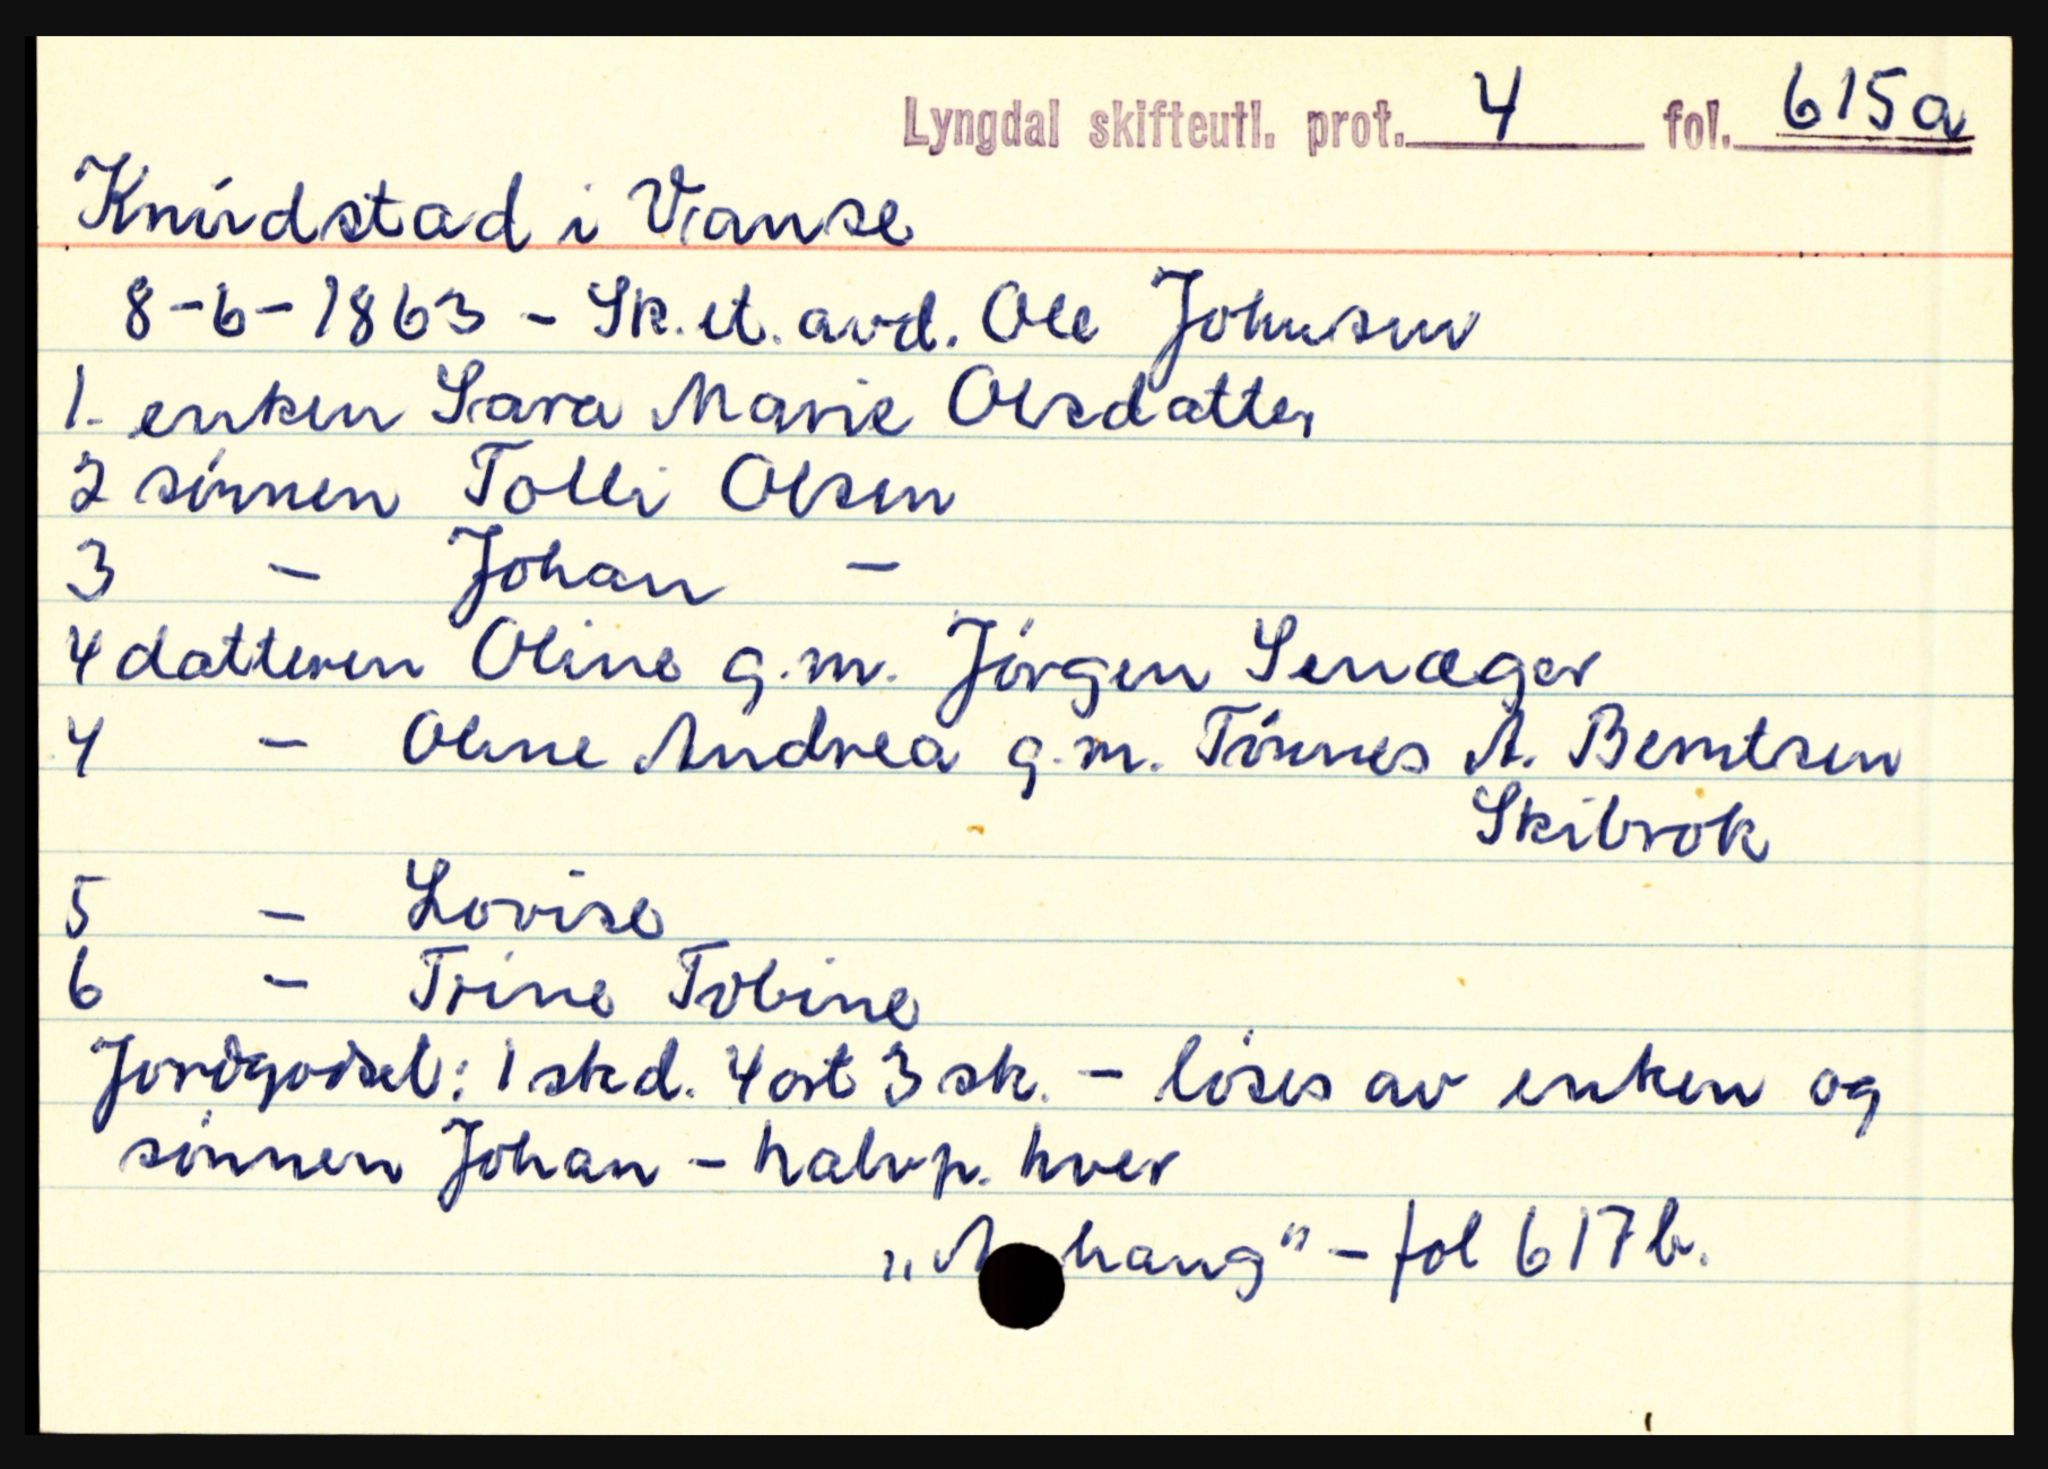 Lyngdal skifteutl. prot. 4 fol. 615a
Knúdstad i Vanse
8-6-1863 - Sk. et. avd. Ole Johnsen
1. enken Sara Marie Olsdatter
2 sónnen Tolli Olsen
3 - Johan -
4 datteren Oline g.m. Jórgen Senæger
4 - Oline Andrea g.m. Tónnes A. Berntsen
Skibrok
5 - Lovise
6 - Trine Tobine
Jordgodset: 1 skd. 4 ort 3 sk. - lóses av enken og
sónnen Johan - halvp. hver
„A hang" - fol 617b.